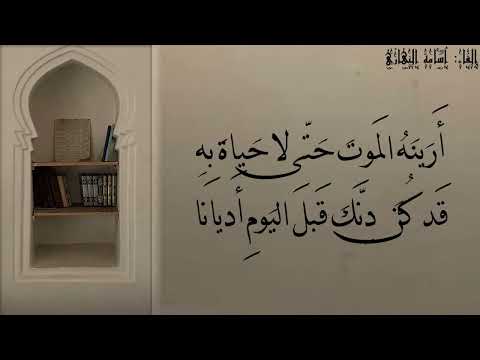 إلقاء: أسامة
أَرَينَهُ المَوتَ حَتّى لا حَياةَ بِهِ
قَد كُنَّ دِنَّكَ قَبلَ اليَومِ أَديانا